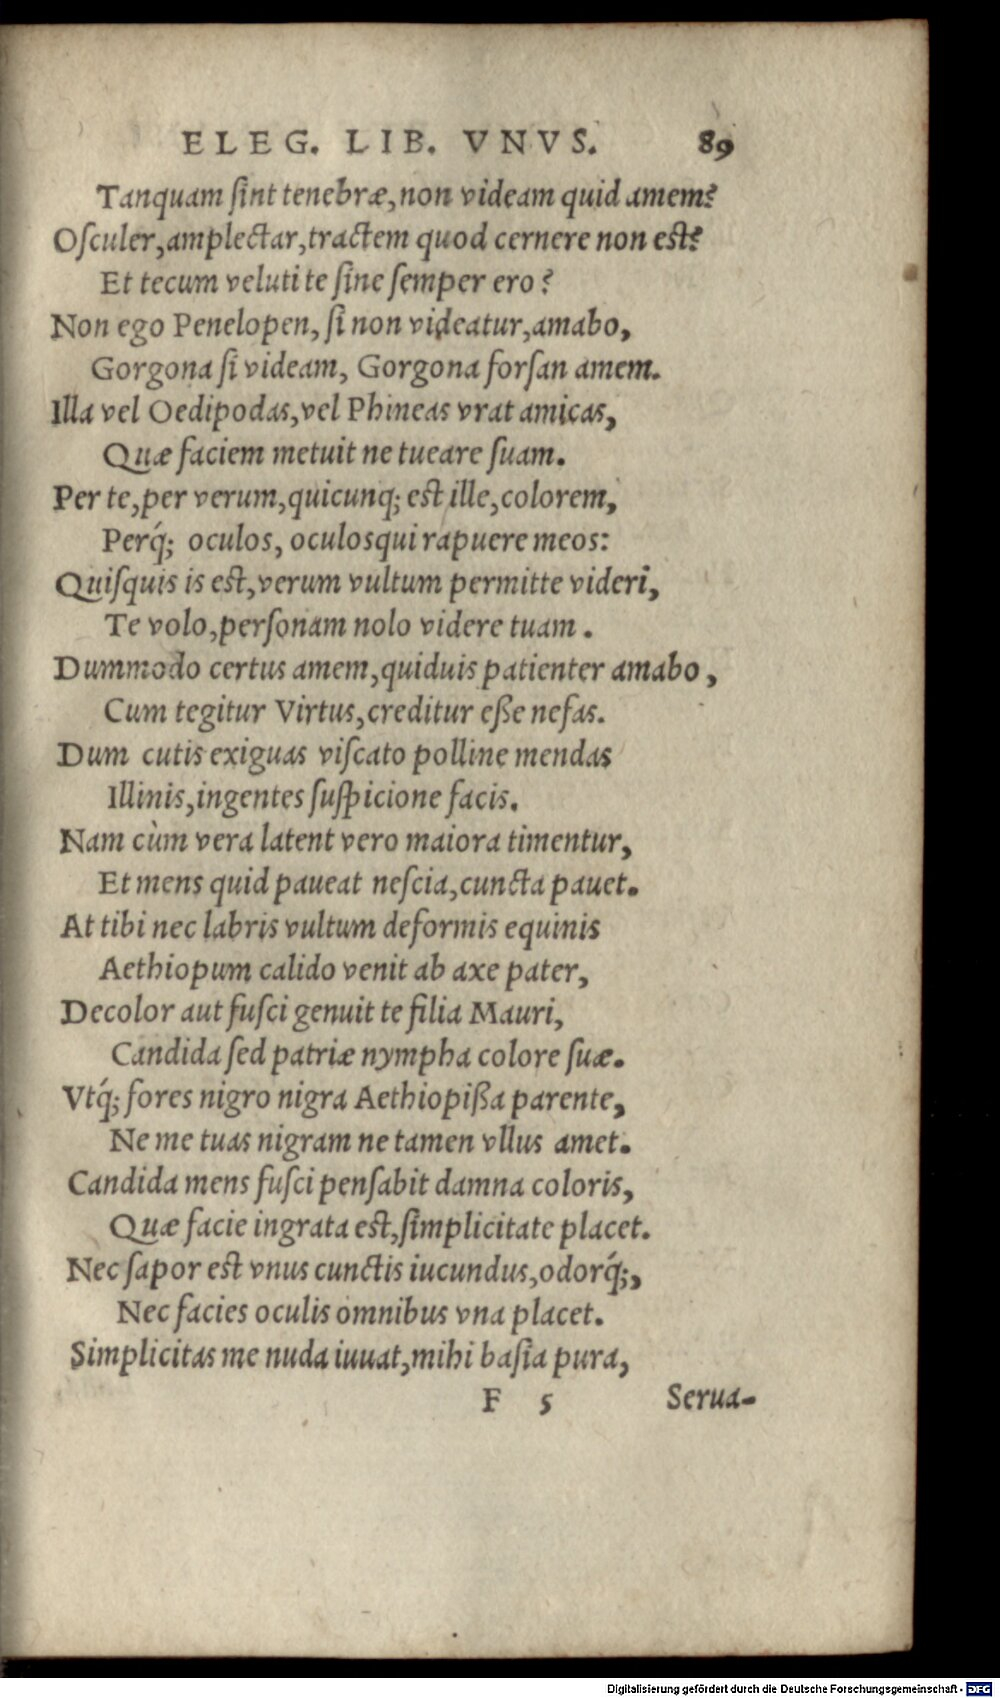 ELEG. LIB. VNVS. 89
Tanquam ſint tenebræ, non videam quid amem?
Oſculer, amplectar, tractem quod cernere non est?
Et tecum veluti te ſine ſemper ero?
Non ego Penelopen, ſi non videatur, amabo,
Gorgona ſi videam, Gorgona forſan amem.
Illa vel Oedipodas, vel Phineas vrat amicas,
Quæ faciem metuit ne tueare ſuam.
Per te, per verum, quicunq; est ille, colorem,
Perq́; oculos, oculos qui rapuere meos:
Quiſquis is est, verum vultum permitte videri,
Te volo, perſonam nolo videre tuam.
Dummodo certus amem, quiduis patienter amabo,
Cum tegitur Virtus, creditur eße nefas.
Dum cutis exiguas viſcato polline mendas
Illinis, ingentes ſuſpicione facis.
Nam cùm vera latent vero maiora timentur,
Et mens quid paueat neſcia, cuncta pauet.
At tibi nec labris vultum deformis equinis
Aethiopum calido venit ab axe pater,
Decolor aut fuſci genuit te filia Mauri,
Candida ſed patriæ nympha colore ſuæ.
Vtq́; fores nigro nigra Aethiopißa parente,
Ne me tuas nigram ne tamen vllus amet.
Candida mens fuſci penſabit damna coloris,
Quæ facie ingrata est, ſimplicitate placet.
Nec ſapor est vnus cunctis iucundus, odorq́;,
Nec facies oculis omnibus vna placet.
Simplicitas me nuda iuuat, mihi baſia pura,
F 5 Serua-
Digitalisierung gefördert durch die Deutsche Forschungsgemeinschaft - DFG